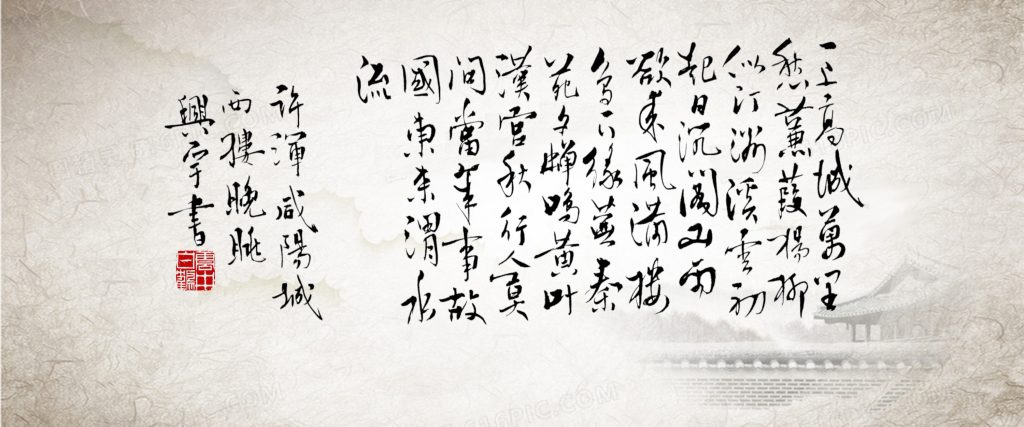 一上高城萬里
愁蒹葭楊柳
似汀洲溪雲初
起日沉閣山雨
欲來風滿樓
鳥下綠蕪秦
苑夕蟬鳴黃叶
漢宮秋行人莫
問當年事故
國東來渭水
流
許渾咸陽城
西樓晚眺
興宇書